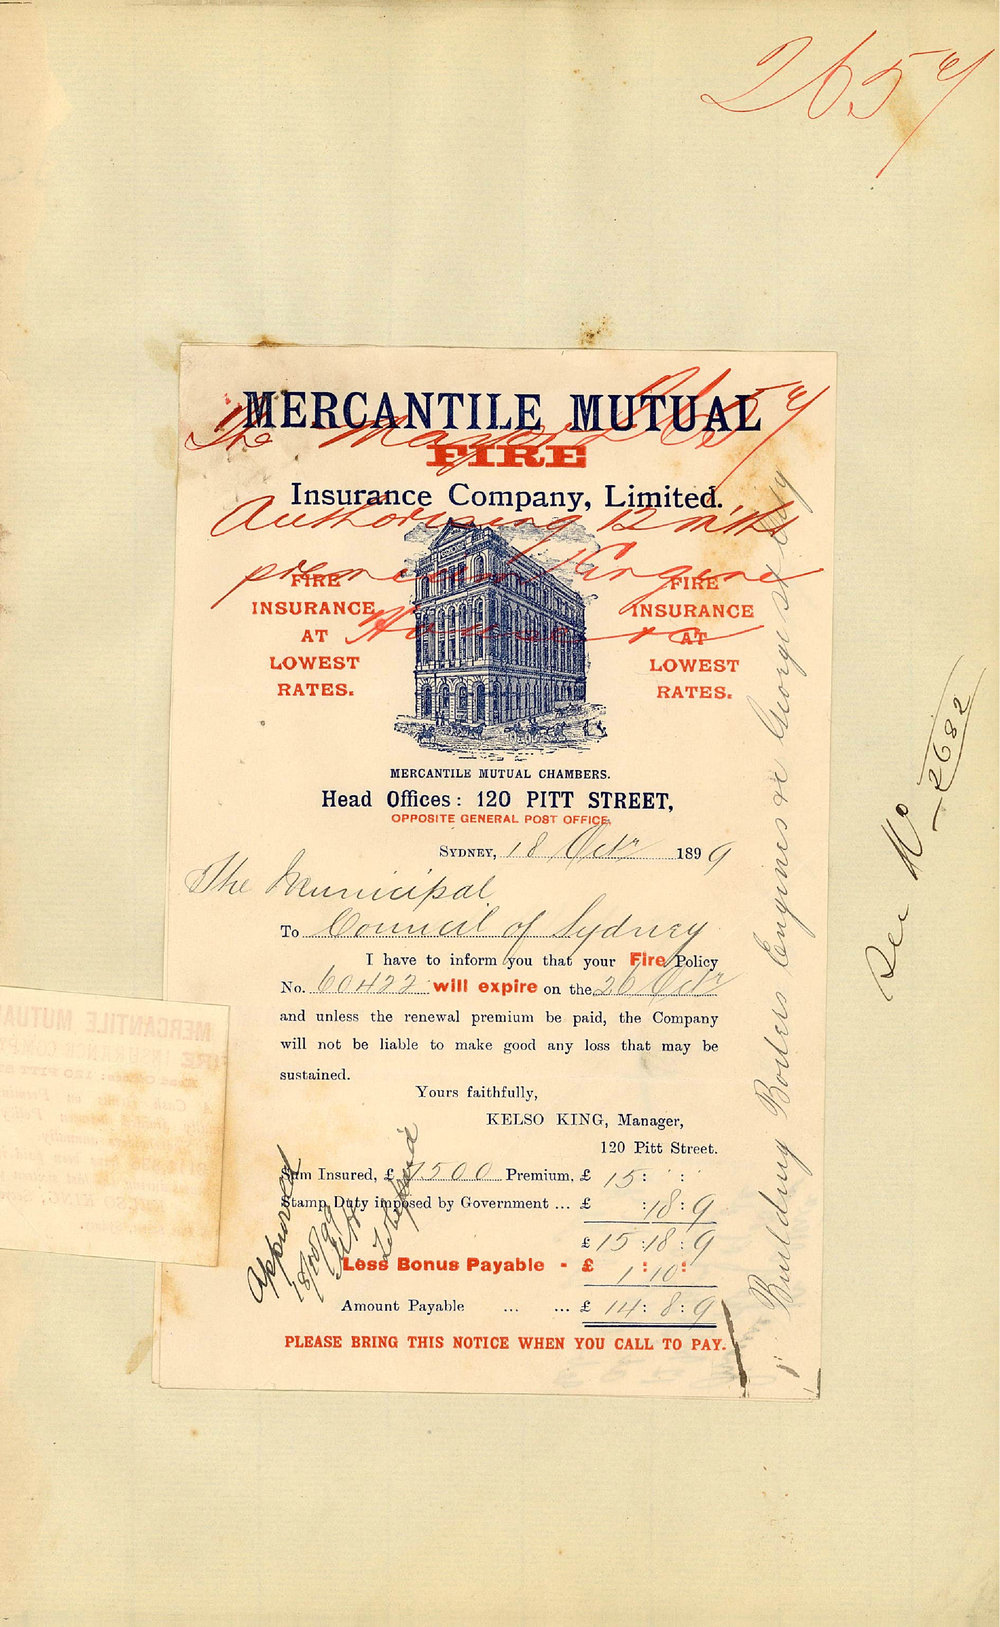 2657
MERCANTILE MUTUAL
FIRE
Insurance Company, Limited.
The Mayor 2657
Authorising 12 mths
premium
FIRE
INSURANCE
AT
LOWEST
RATES.
FIRE
INSURANCE
AT
LOWEST
RATES.
MERCANTILE MUTUAL CHAMBERS.
Head Offices: 120 PITT STREET,
OPPOSITE GENERAL POST OFFICE.
SYDNEY, 18 Octr 1899
The Municipal
To Council of Sydney
I have to inform you that your Fire Policy
No. 60422 will expire on the 26 Octr
and unless the renewal premium be paid, the Company
will not be liable to make good any loss that may be
sustained.
Yours faithfully,
KELSO KING, Manager,
120 Pitt Street.
Sum Insured, £ 1500 Premium, £ 15 : :
Stamp Duty imposed by Government ... £ : 18 : 9
£ 15 : 18 : 9
Less Bonus Payable - £ 1 : 10 :
Amount Payable ... ... £ 14 : 8 : 9
PLEASE BRING THIS NOTICE WHEN YOU CALL TO PAY.
Approved
18/10/99
To be paid
Building Boilers Engines &c George St City
See No
2682
MERCANTILE MUTUAL
FIRE INSURANCE